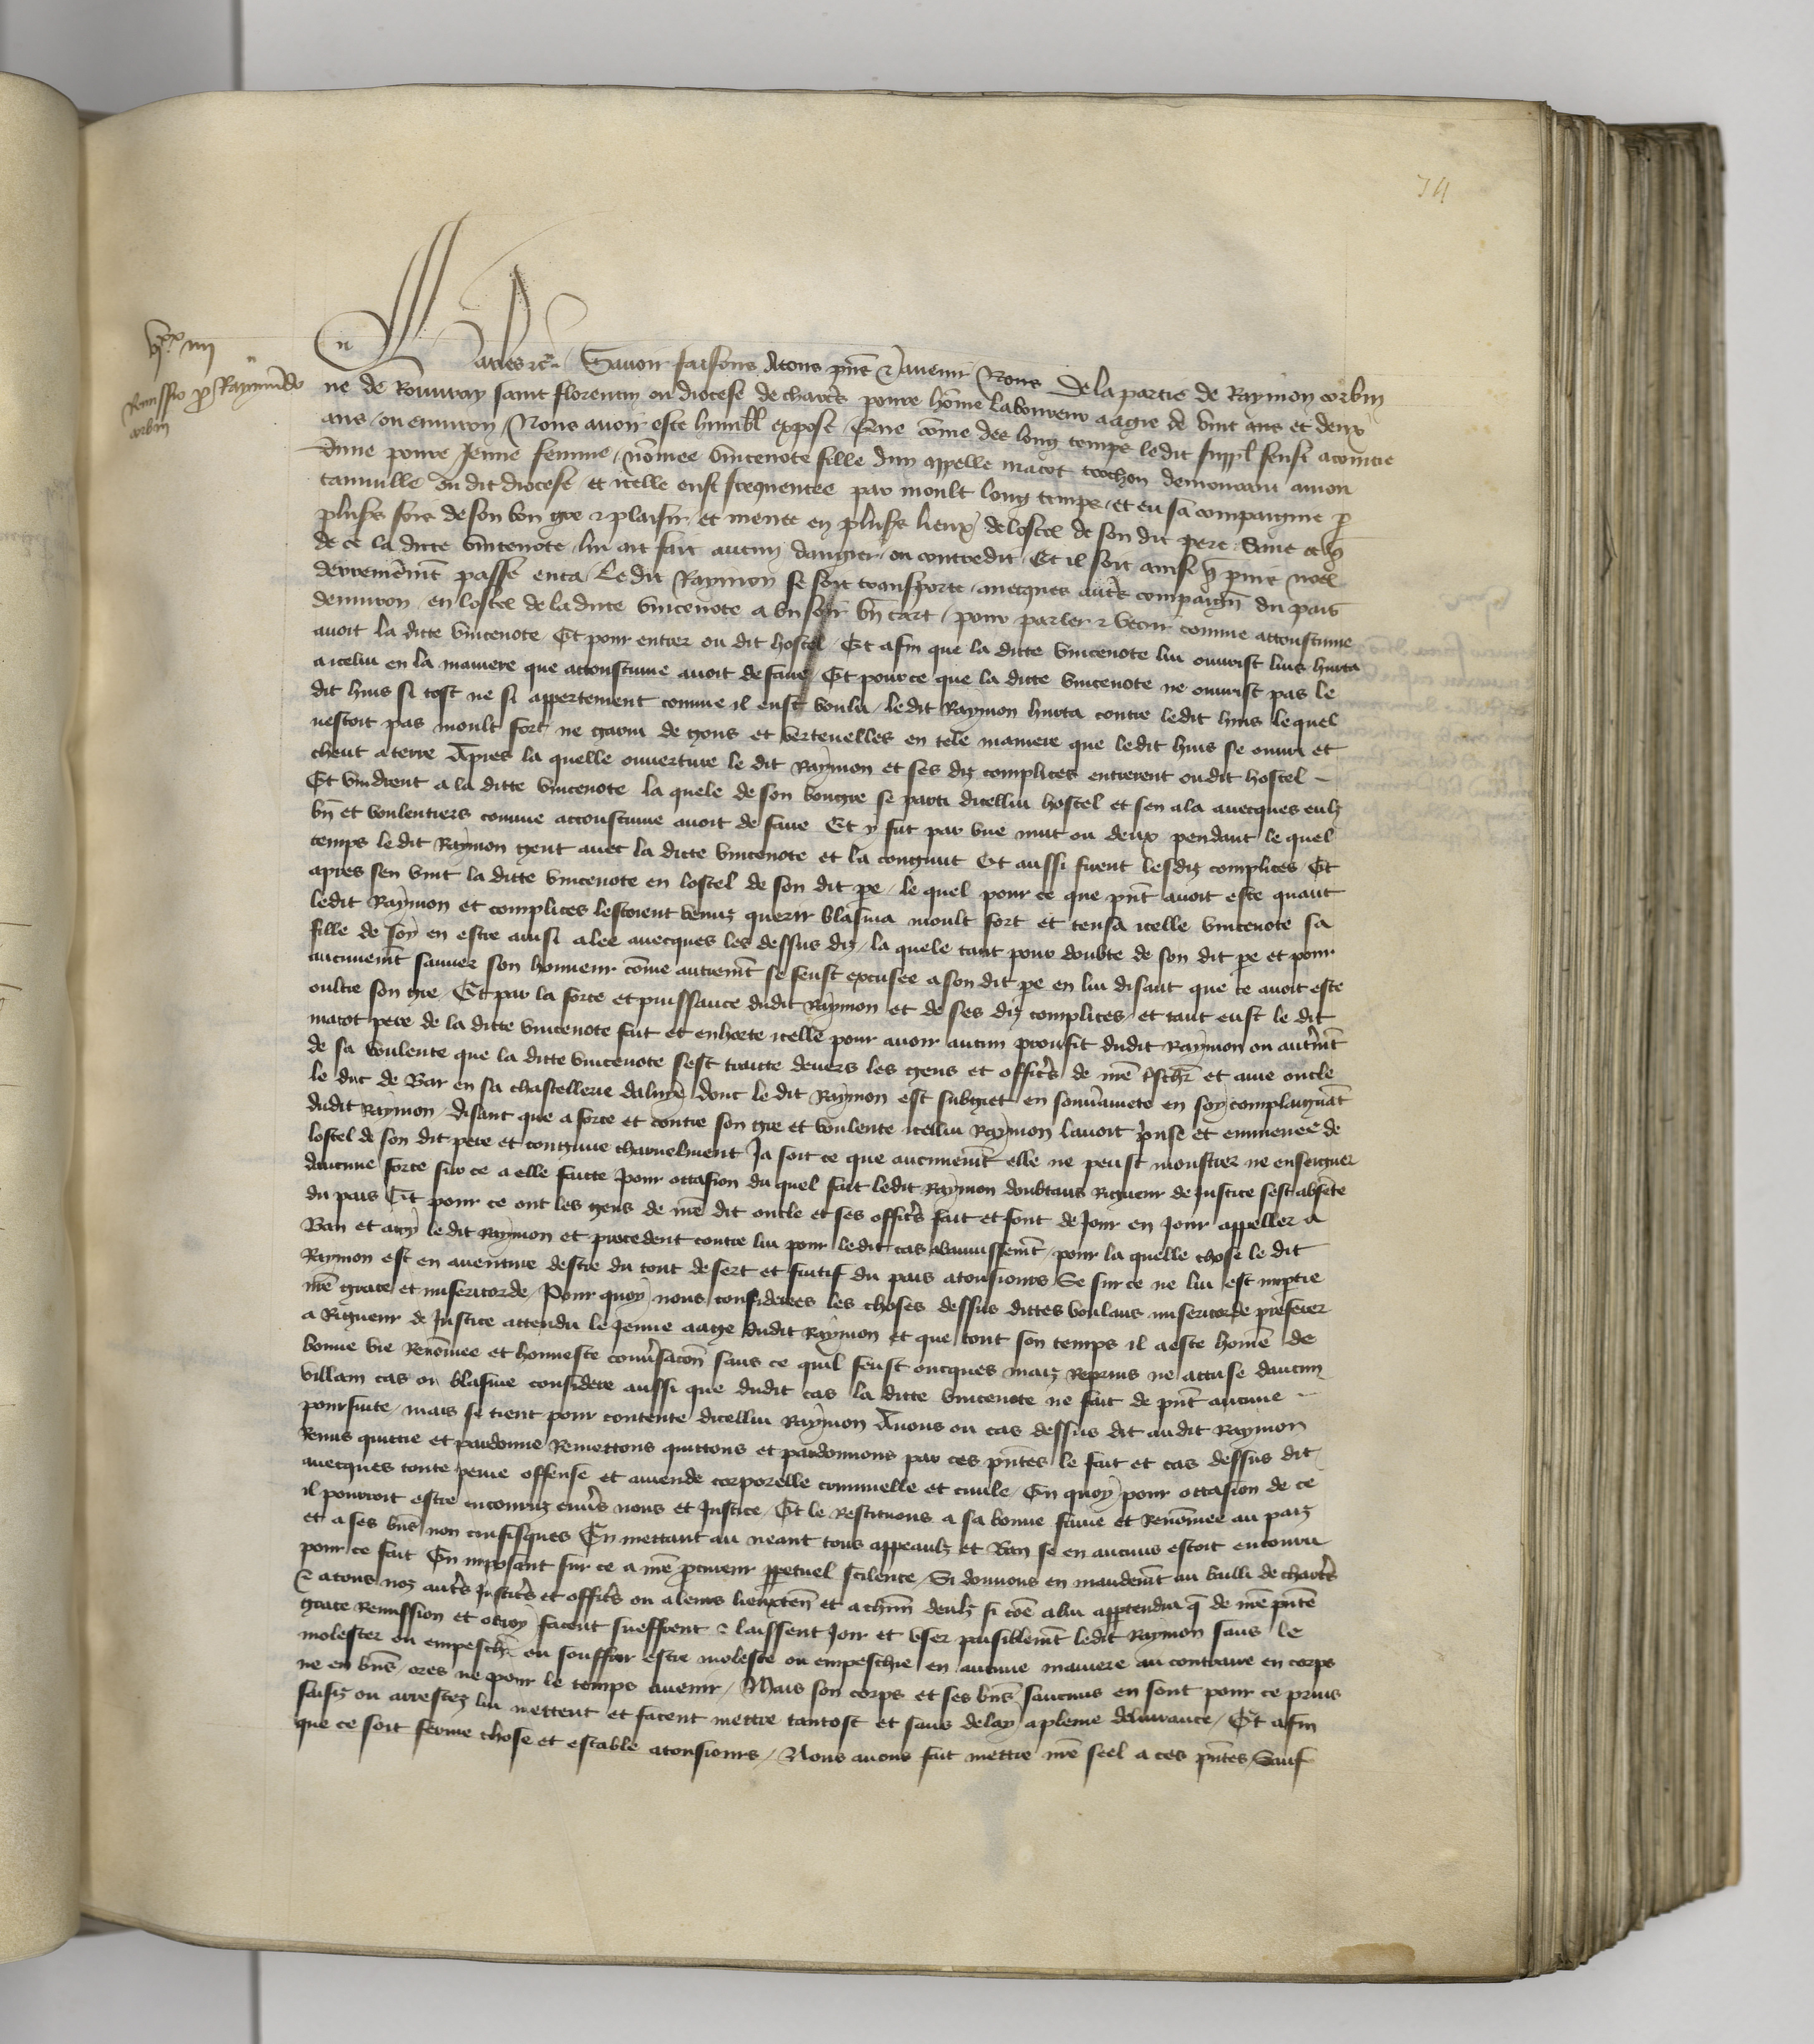 74
vixx iiii
Remissio pro Raymundo
corbin
Karles etc. Savoir faisons atous pñs & avenir Nous De la partie de Raymon corbin
ne de Rouvray saint florentin ou diocese de chartres povre hõme laboureur aagie de vint ans et deux
ans ou environ Nous avoir este humbl expose Que cõme des long temps ledit suppl feust acointie
dune povre Jeune femme nõmee vincenote fille dun appelle macot cochon demourant a
tanville ou dit diocese et icelle eust frequentee par moult long temps et eu sa compaignie p
plusrs fois de son bon gre & plaisir et menee en plusrs lieux de lostel de son dit pere Sanz ce q̃
de ce la ditte vincenote lui ait fait aucun dangier ou contredit Et il soit ainsi q̃ pmie noel
derremeñt passe enca Ledit Raymon se soit transporte avecques autrs compaignõ du pais
denviron en lostel de la ditte vincenote a un soir bñ tart pour parler & veoir comme acoustume
avoit la ditte vincenote Et pour entrer ou dit hostel Et afin que la ditte vincenote lui ouvrist luis hurta
a icelui en la maniere que acoustume avoit de faire Et pource que la ditte vincenote ne ouvrist pas le
dit huis si tost ne si appertement comme il eust voulu ledit Raymon hurta contre ledit huis lequel
nestoit pas moult fort ne garni de gons et vertevelles en tele maniere que ledit huis se ouvri et
cheut a terre Apres la quelle ouverture le dit Raymon et ses diz complices entrerent oudit hostel
Et vindrent a la ditte vincenote la quele de son bongre se parti dicellui hostel et sen ala avecques eulz
bñ et voulentiers comme accoustume avoit de faire Et y fut par une nuit ou deux pendant le quel
temps ledit Raymon geut avec la ditte vincenote et la congnut Et aussi furent lesdiz complices Et
apres sen vint la ditte vincenote en lostel de son dit pe le quel pour ce que pñt avoit este quant
ledit Raymon et complices lestoient venuz querir blasma moult fort et tensa icelle vincenote sa
fille de soy en estre ainsi alee avecques les dessus diz la quele tant pour doubte de son dit pe et pour
aucunemt sauver son honneur cõme autremt se feust excusee a son dit pe en lui disant que ce avoit este
oultre son gre Et par la force et puissance dudit Raymon et de ses diz complices et tant eust le dit
macot pere de la ditte vincenote fait et enhorte icelle pour avoir aucun proufit dudit Raymon ou autremt
de sa voulente que la ditte vincenote sest traicte devers les gens et officrs de nrẽ trschr et ame oncle
le duc de Bar en sa chastellerie daluye dont le dit Raymon est subgiet en souvrainete en soy complaignãt
dudit Raymon disant que a force et contre son gre et voulente icellui Raymon lavoit prinse et emmenee de
lostel de son dit pere et congnue charnelment Ja soit ce que aucunemt elle ne peust monstrer ne enseigner
daucune force sur ce a elle faitte Pour occasion du quel fait ledit Raymon doubtans Rigueur de Justice sest absente
du pais Et pour ce ont les gens de nrẽ dit oncle et ses officrs fait et font de Jour en Jour appeller a
Ban et aussi ledit Raymon et procedent contre lui pour ledit cas a banissemt pour la quelle chose le dit
Raymon est en aventure destre du tout desert et fuitif du pais atousiours Se sur ce ne lui est impartie
nrẽ grace et misericorde Pour quoy nous considerees les choses dessus dittes voulans misericorde preferer
a Rigueur de Justice attendu le Jeune aage dudit Raymon et que tout son temps il a este homẽ de
bonne vie Renõmee et honneste convrsacõn sans ce quil feust oncques maiz Reprins ne accuse daucun
villain cas ou blasme considere aussi que dudit cas la ditte vincenote ne fait de pñt aucune
poursuite mais se tient pour contente dicellui Raymon Avons ou cas dessus dit audit Raymon
Remis quittie et pardonne Remettons quittons et pardonnons par ces pñtes le fait et cas dessus dit
avecques toute peine offense et amende corporelle criminelle et civile En quoy pour occasion de ce
il pourroit estre encouruz envrs nous et Justice Et le Restituons a sa bonne fame et Renõmee au paiz
et a ses bñs non confisques En mettant au neant tous appeaulz et Ban se en aucuns estoit encouru
pour ce fait En imposant sur ce a nrẽ procureur ppetuel scilence Si donnons en mandemt au bailli de chartrs
& atous noz autrs Justicrs et officrs ou a leurs lieuxtenñ et a chũn deulz si cõe a lui appartendra q̃ de nrẽ pñte
grace Remission et otroy facent sueffrent & laissent Joir et user paisiblemt ledit Raymon sans le
molester ou empeschr ou souffrir estre moleste ou empeschie en aucune maniere au contraire en corps
ne en bñs ores ne pour le temps avenir Mais son corps et ses bñs saucuns en sont pour ce prins
saisiz ou arrestez lui mettent et facent mettre tantost et sans delay a pleine delivrance Et afin
que ce soit ferme chose et estable atousiours Nous avons fait mettre nrẽ seel a ces pñtes Sauf